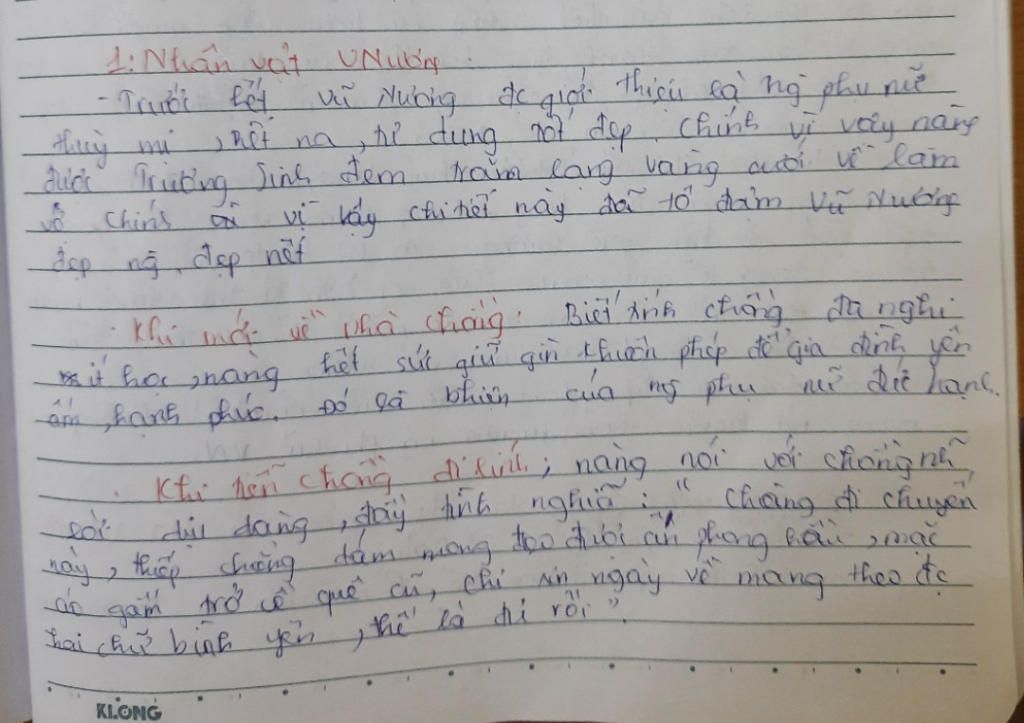 1: Nhân vật VNương
- Trước hết vũ Nương đc giới thiệu là ng phụ nữ
thuỳ mị, nết na, tư dung tốt đẹp. Chính vì vậy nàng
được Trương Sinh đem trăm lạng vàng cưới về làm
vợ chính vì vậy chi tiết này đã tô đậm Vũ Nương
đẹp ng, đẹp nết
. Khi mới về nhà chồng: Biết tính chồng đa nghi
ít học, nàng hết sức giữ gìn khuôn phép để gia đình yên
ấm, hạnh phúc. Đó là của ng phụ nữ đức hạnh.
. Khi tiễn chồng đi lính; nàng nói với chồng
lời dịu dàng, đầy tình nghĩa: " Chàng đi chuyến
này, thiếp chẳng dám mong đeo được ấn phong hầu, mặc
áo gấm trở về quê cũ, chỉ xin ngày về mang theo đc
hai chữ bình yên, thế là đủ rồi".
KLONG